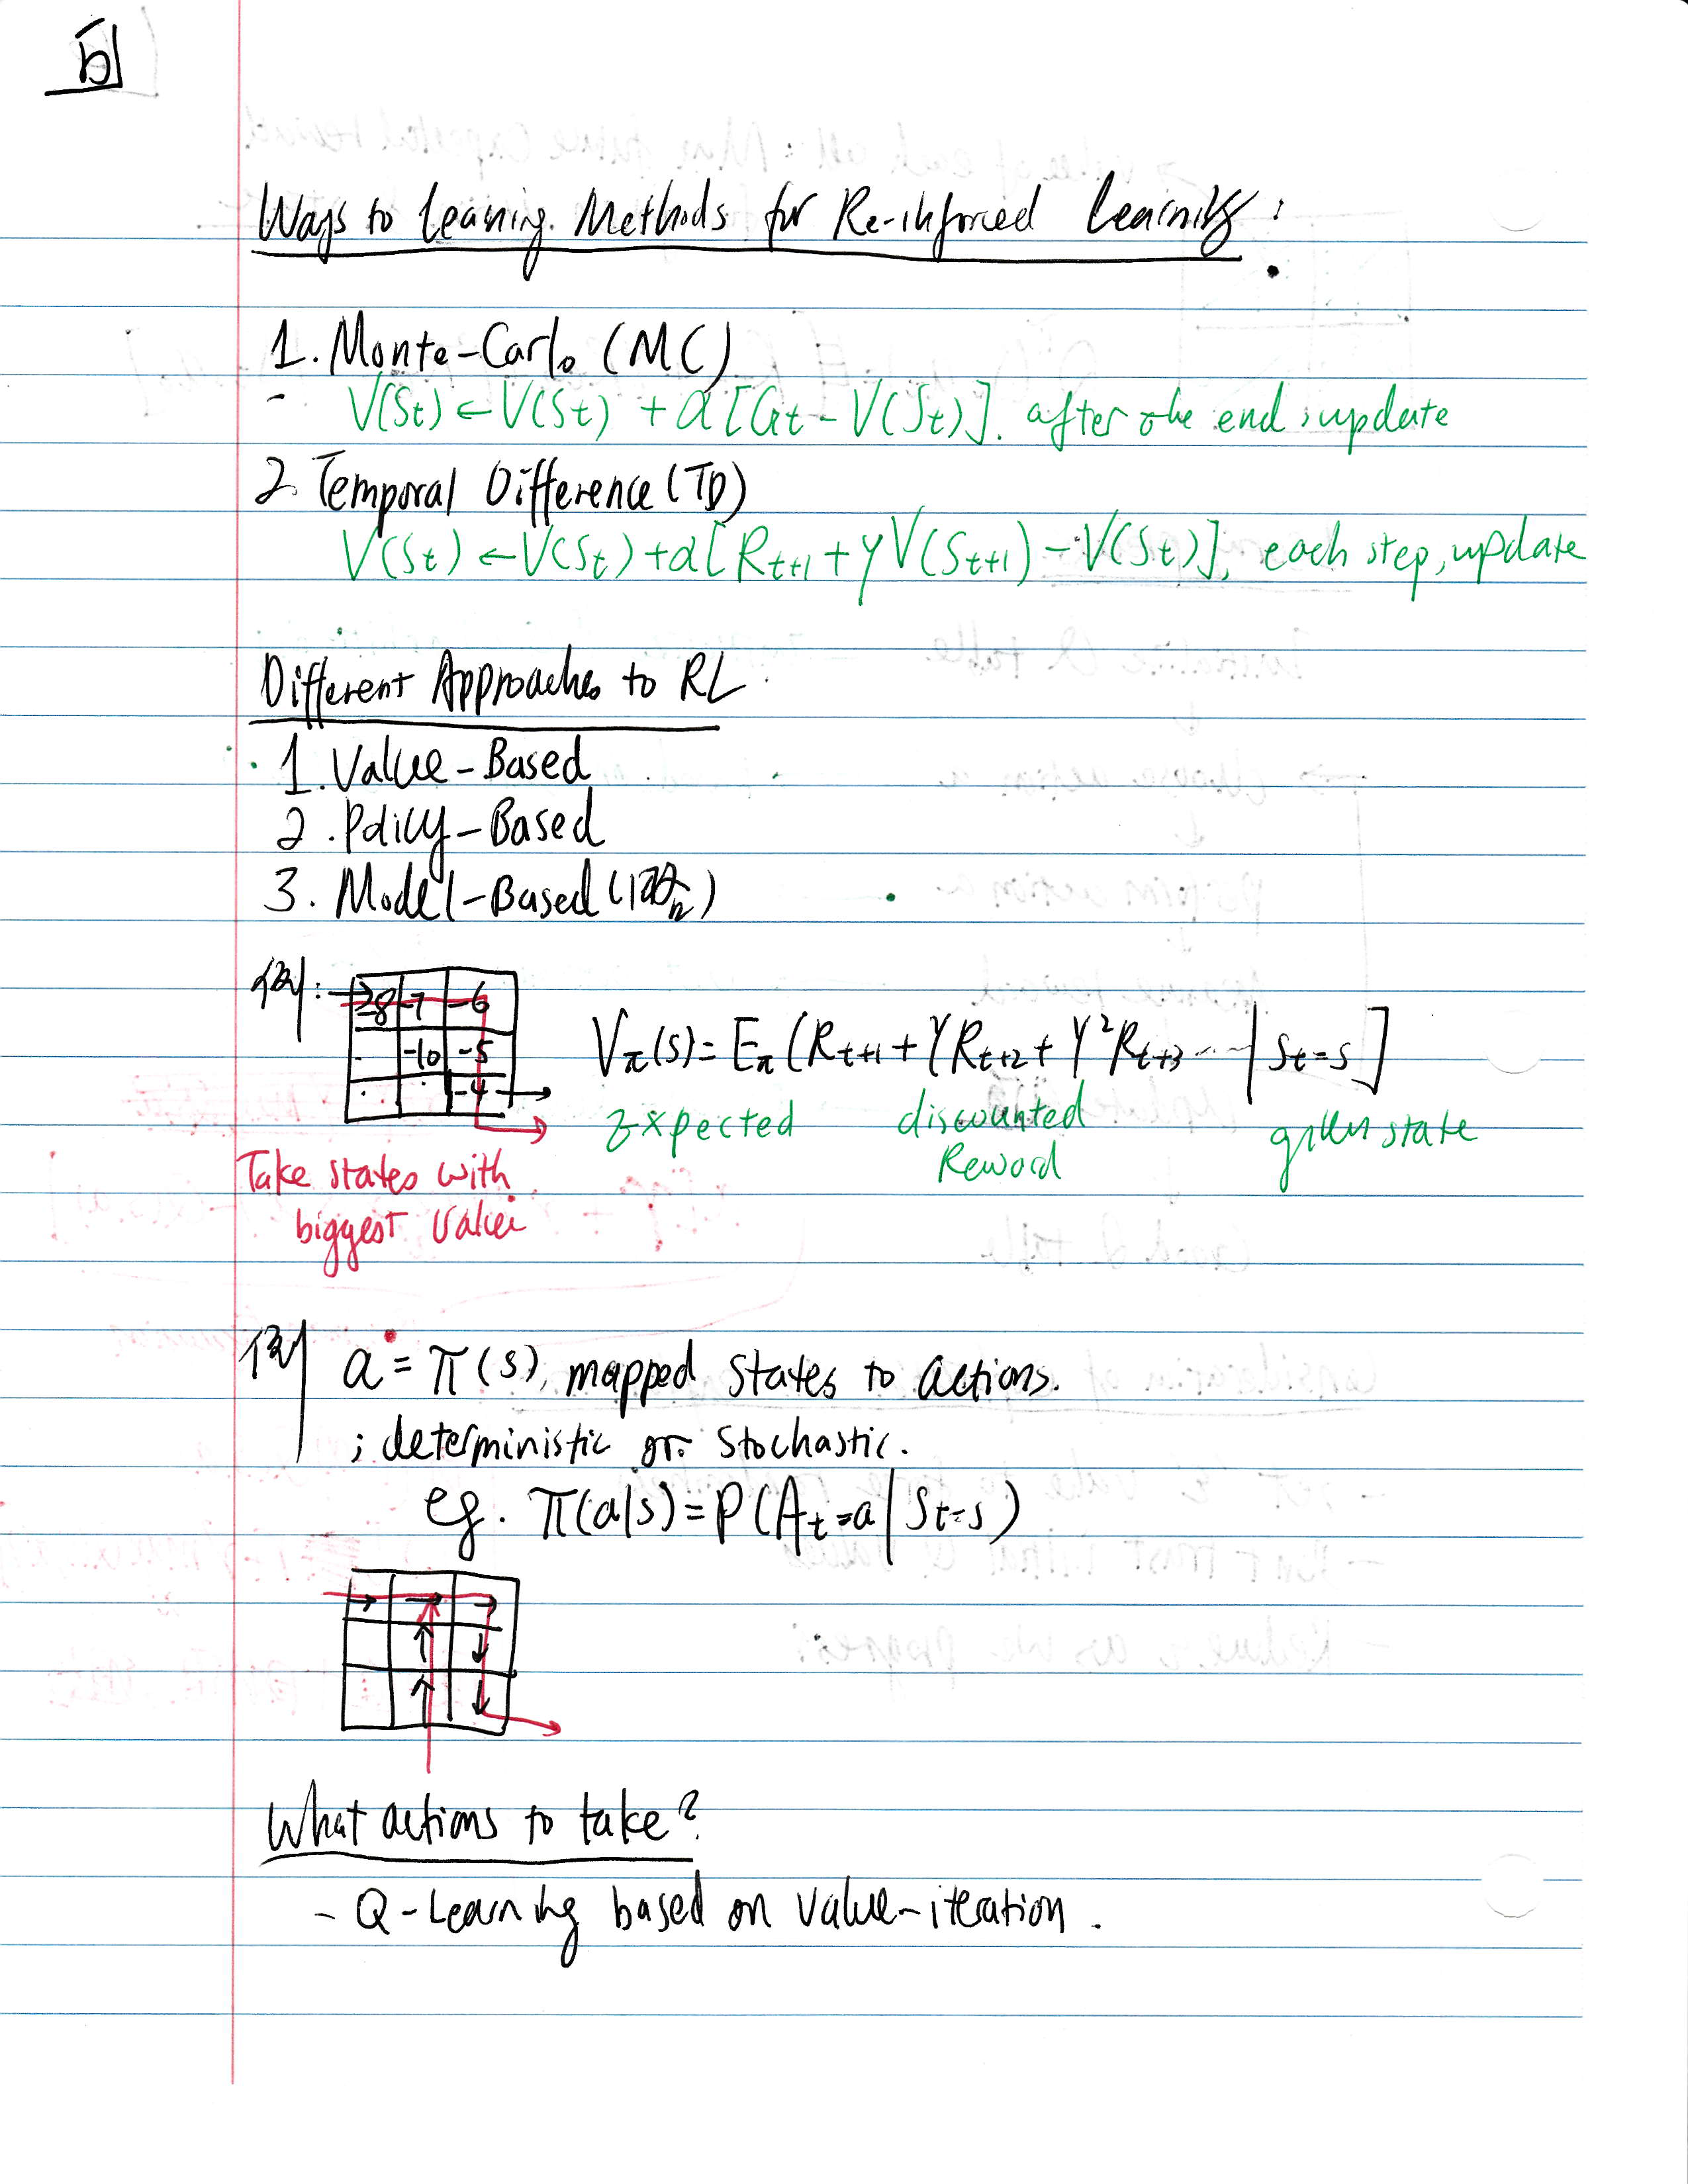 b
Ways to Learning Methods for Re-inforced Learning:
1. Monte-Carlo (MC)
V(St) ← V(St) + α[Gt - V(St)]. after the end, update
2. Temporal Difference (TD)
V(St) ← V(St) + α[Rt+1 + γV(St+1) - V(St)], each step, update
Different Approaches to RL
1. Value-Based
2. Policy-Based
3. Model-Based
-8 -7 -6
-10 -5
-4
Vπ(s) = Eπ(Rt+1 + γRt+2 + γ²Rt+3 ... | St=s]
Expected discounted given state
Reword
Take states with
biggest value
a = π(s), mapped states to actions.
; deterministic or stochastic.
eg. π(a|s) = P(At=a | St=s)
What actions to take?
- Q-Learning based on value-iteration.